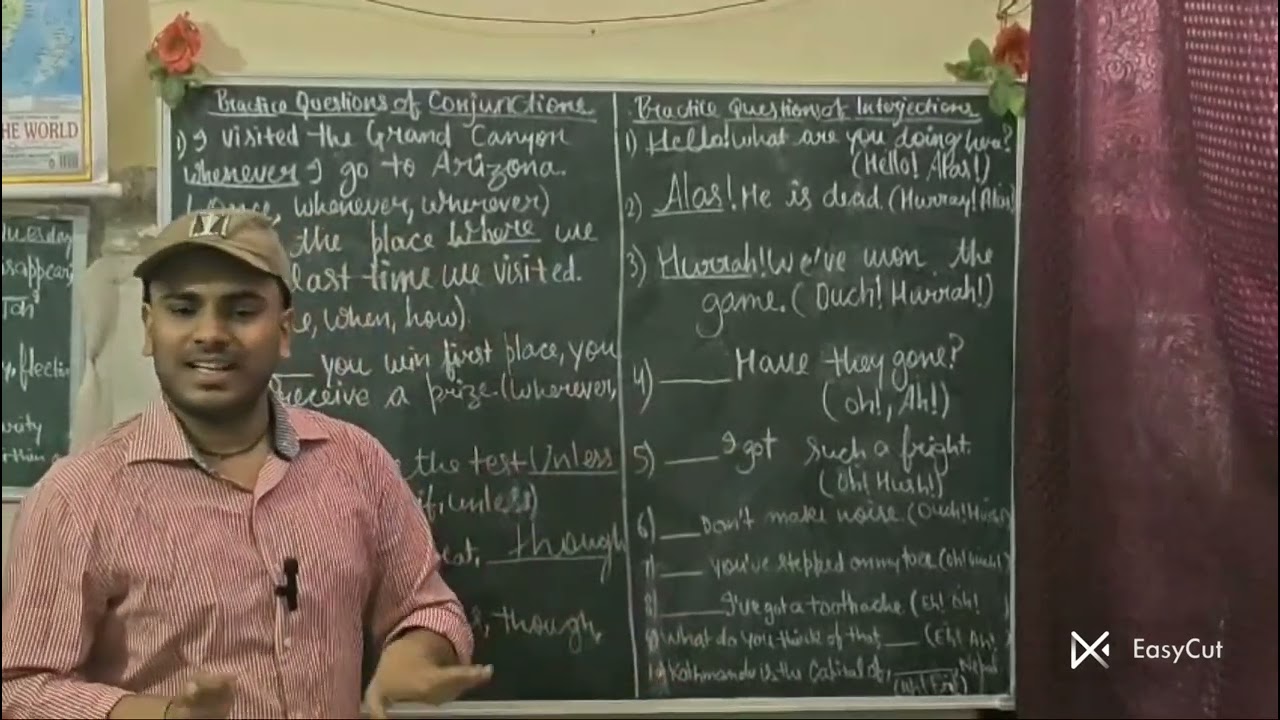 HE WORLD
Practice Questions of Conjunctions
1) I visited the Grand Canyon
whenever I go to Arizona.
(Once, whenever, wherever)
the place where we
last time we visited.
, when, how)
you win first place, you
receive a prize. (wherever,
the test Unless
if, unless)
though
, though,
Practice Question of Interjections
1) Hello! What are you doing here?
(Hello! Alas!)
2) Alas! He is dead. (Hurray! Alas!)
3) Hurrah! We've won the
game. ( Ouch! Hurrah!)
4) ____ Have they gone?
(Oh!, Ah!)
5) ___ I got such a fright.
(Oh! Hush!)
6) ___ Don't make noise. (Ouch! Hush!
7) ___ you've stepped on my toe (Oh! Ouch!)
8) ____ I've got a toothache (Eh! Oh!
9) What do you think of that ___ (Eh! Ah!
10) Kathmandu is the Capital of, ____, Nepal
EasyCut